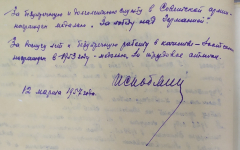 За безупречную и долголетнюю службу в Советской армии
награжден медалью "За победу над Германией".
За выслугу лет и безупречную работу в
награжден в 1953 году - медалью "За трудовое отличие".
12 марта 1957 года